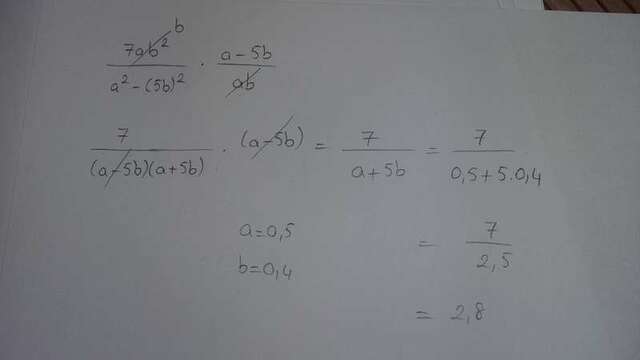 7ab² b / a² - (5b)² · a - 5b / ab
7 / (a - 5b)(a + 5b) · (a - 5b) = 7 / a + 5b = 7 / 0,5 + 5.0,4
a = 0,5 = 7 / 2,5
b = 0,4
= 2,8